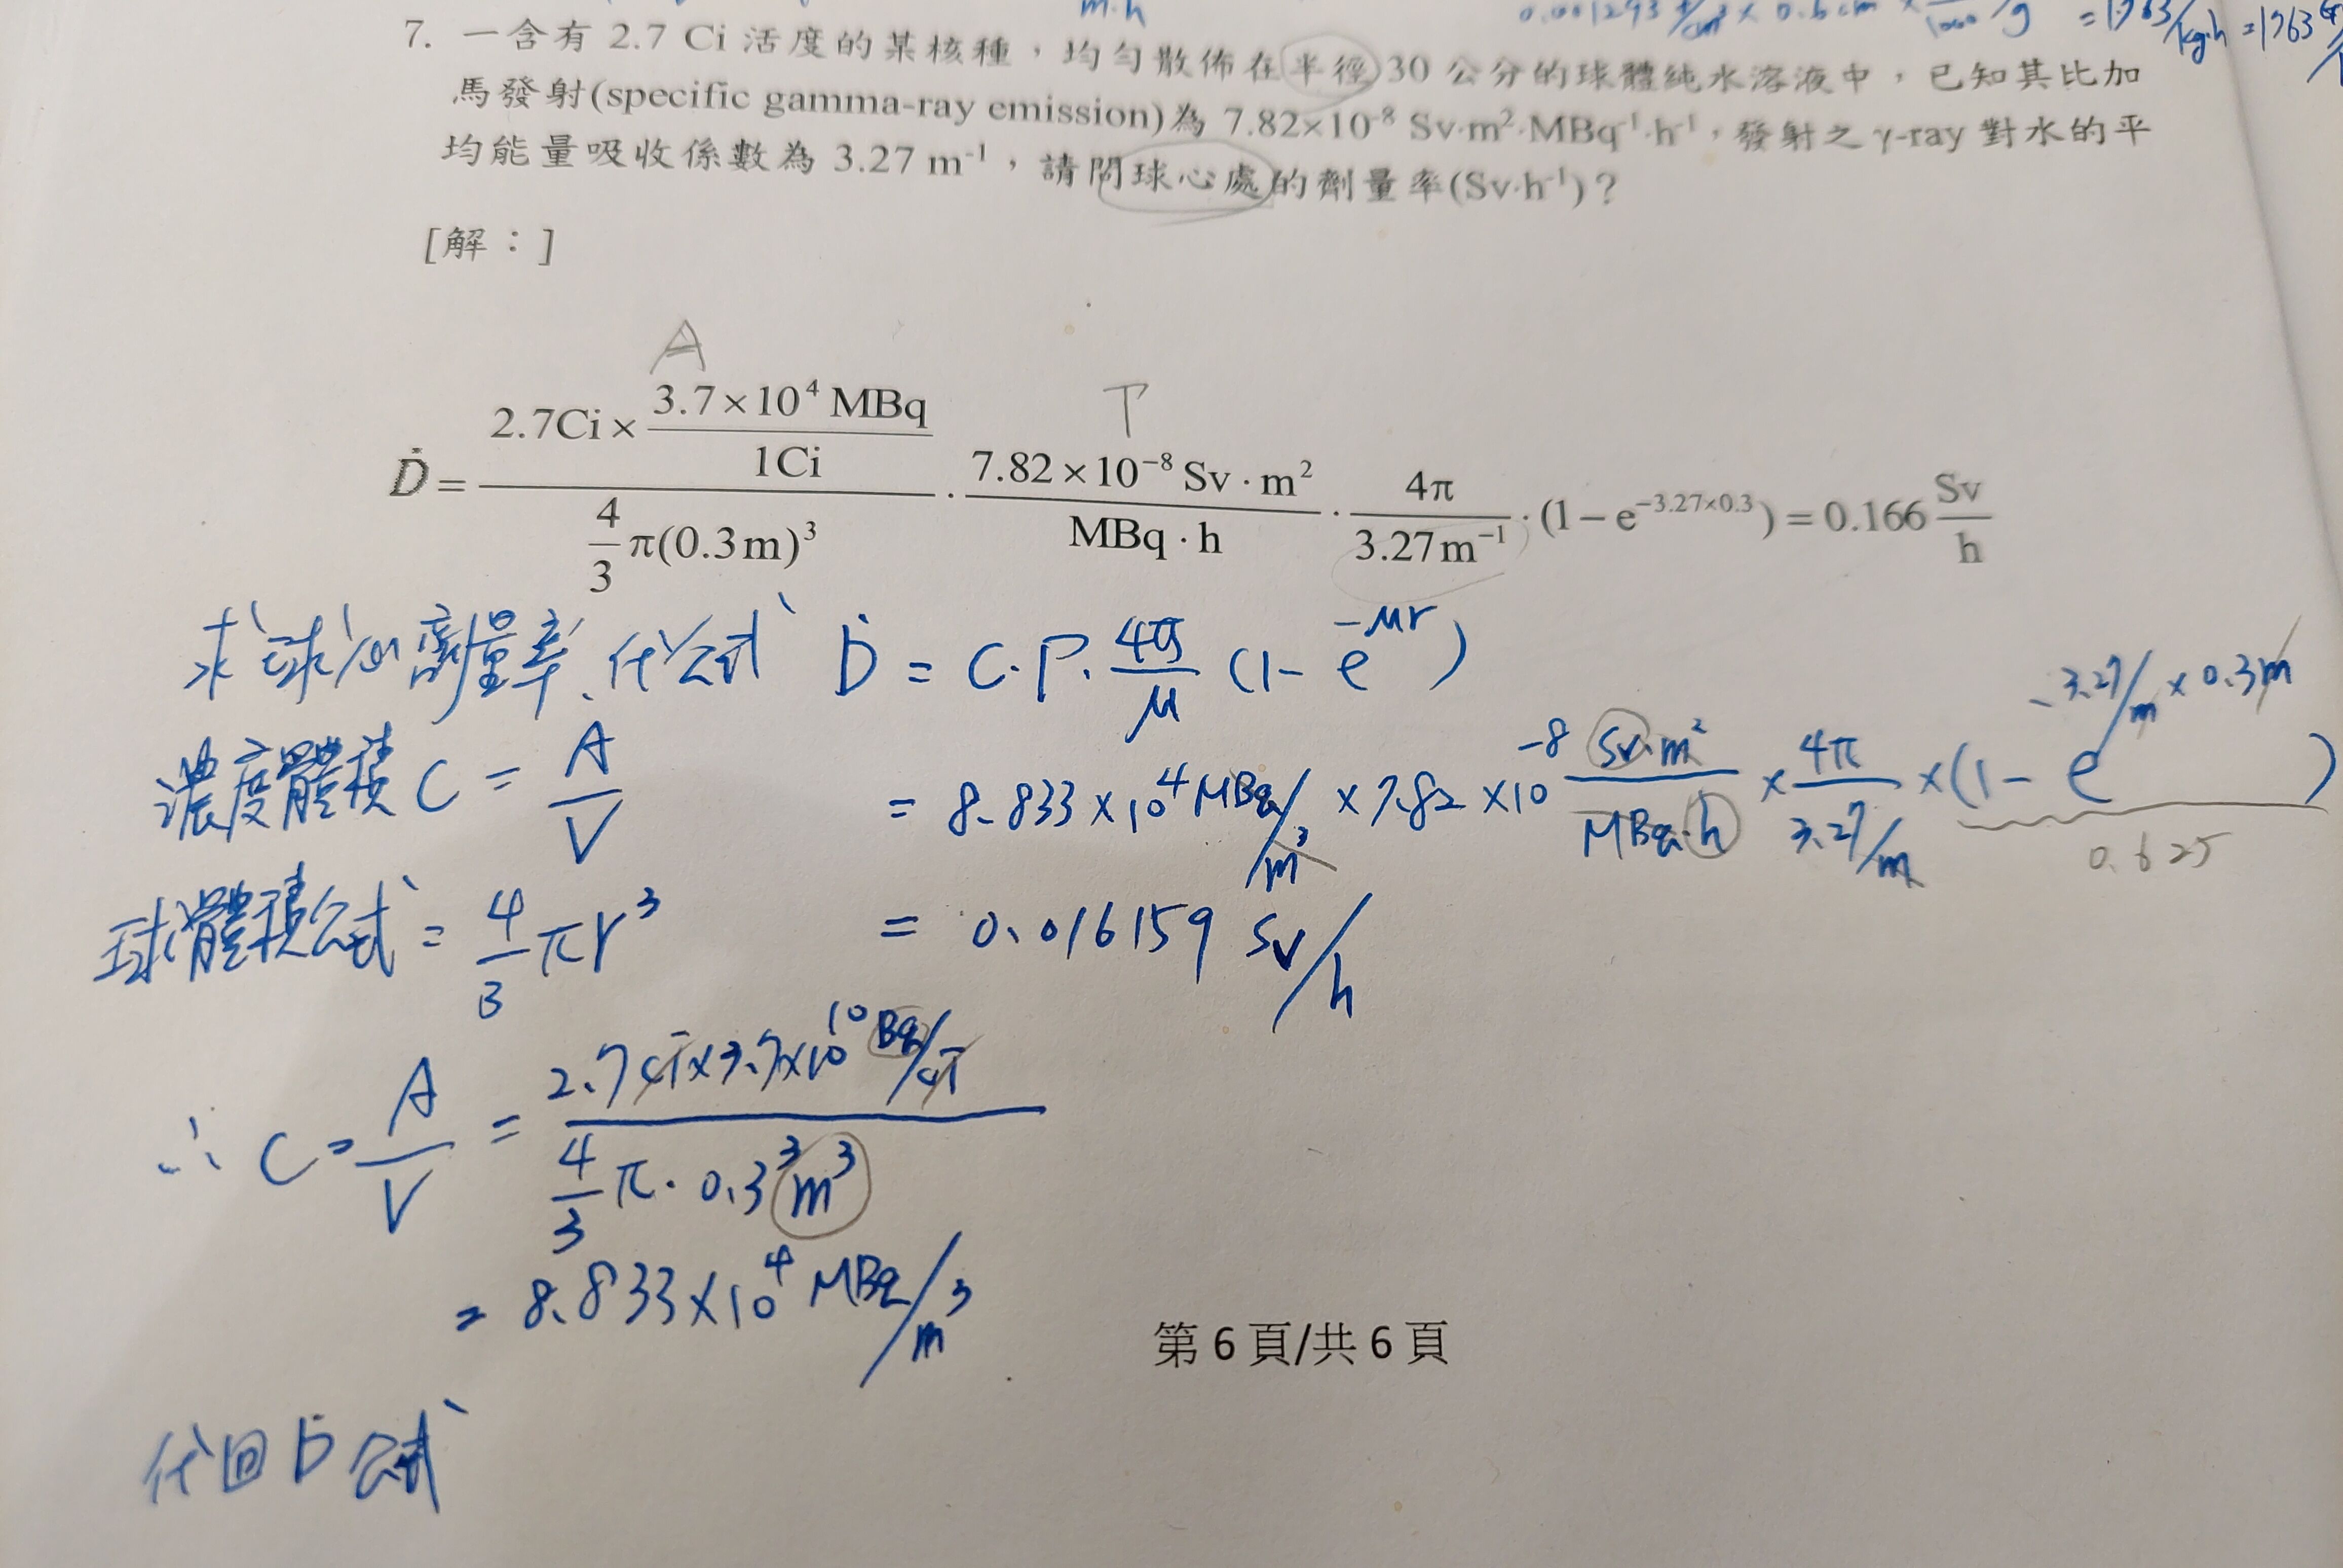 m·h
0.001293 g/cm³ × 0.6 cm
= 1763 /kg·h = 1763
7. 一含有 2.7 Ci 活度的某核種，均勻散佈在半徑 30 公分的球體純水溶液中，已知其比加
馬發射(specific gamma-ray emission)為 7.82×10⁻⁸ Sv·m²·MBq⁻¹·h⁻¹，發射之 γ-ray 對水的平
均能量吸收係數為 3.27 m⁻¹，請問球心處的劑量率(Sv·h⁻¹)？
[解：]
A
Γ
Ḋ = (2.7Ci × (3.7×10⁴ MBq / 1Ci)) / ((4/3)π(0.3m)³) · (7.82×10⁻⁸ Sv·m²) / (MBq·h) · 4π / (3.27m⁻¹) · (1−e^(−3.27×0.3)) = 0.166 Sv/h
求球心劑量率、代公式 Ḋ = C·Γ·(4π/μ)(1−e^(−μr))
濃度體積 C = A/V
= 8.833×10⁴ MBq/m³ × 7.82×10⁻⁸ (Sv·m²)/(MBq·h) × 4π/(3.27/m) × (1−e^(−3.27/m × 0.3m))
0.625
球體積公式 = (4/3)πr³
= 0.016159 Sv/h
∴ C = A/V = (2.7Ci×3.7×10¹⁰ Bq/Ci) / ((4/3)π·0.3³m³)
= 8.833×10⁴ MBq/m³
第 6 頁/共 6 頁
代回 Ḋ 公式